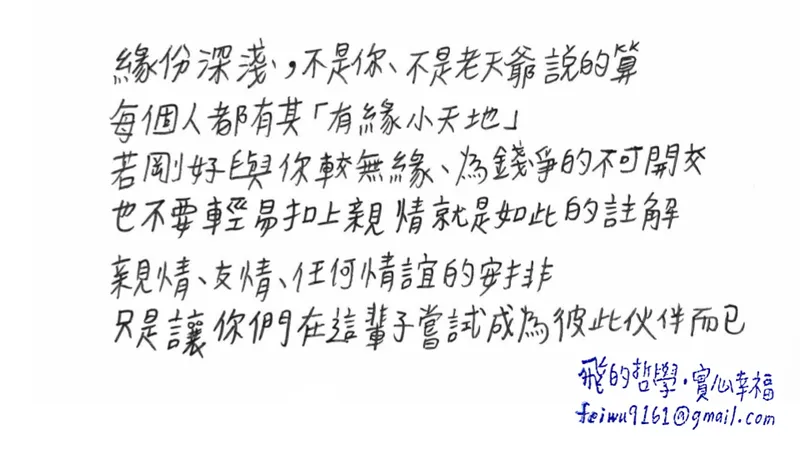 緣份深淺,不是你、不是老天爺說的算
每個人都有其「有緣小天地」
若剛好與你較無緣、為錢爭的不可開交
也不要輕易扣上親情就是如此的註解
親情、友情、任何情誼的安排
只是讓你們在這輩子嘗試成為彼此伙伴而已
飛的哲學.實心幸福
feiwu9161@gmail.com